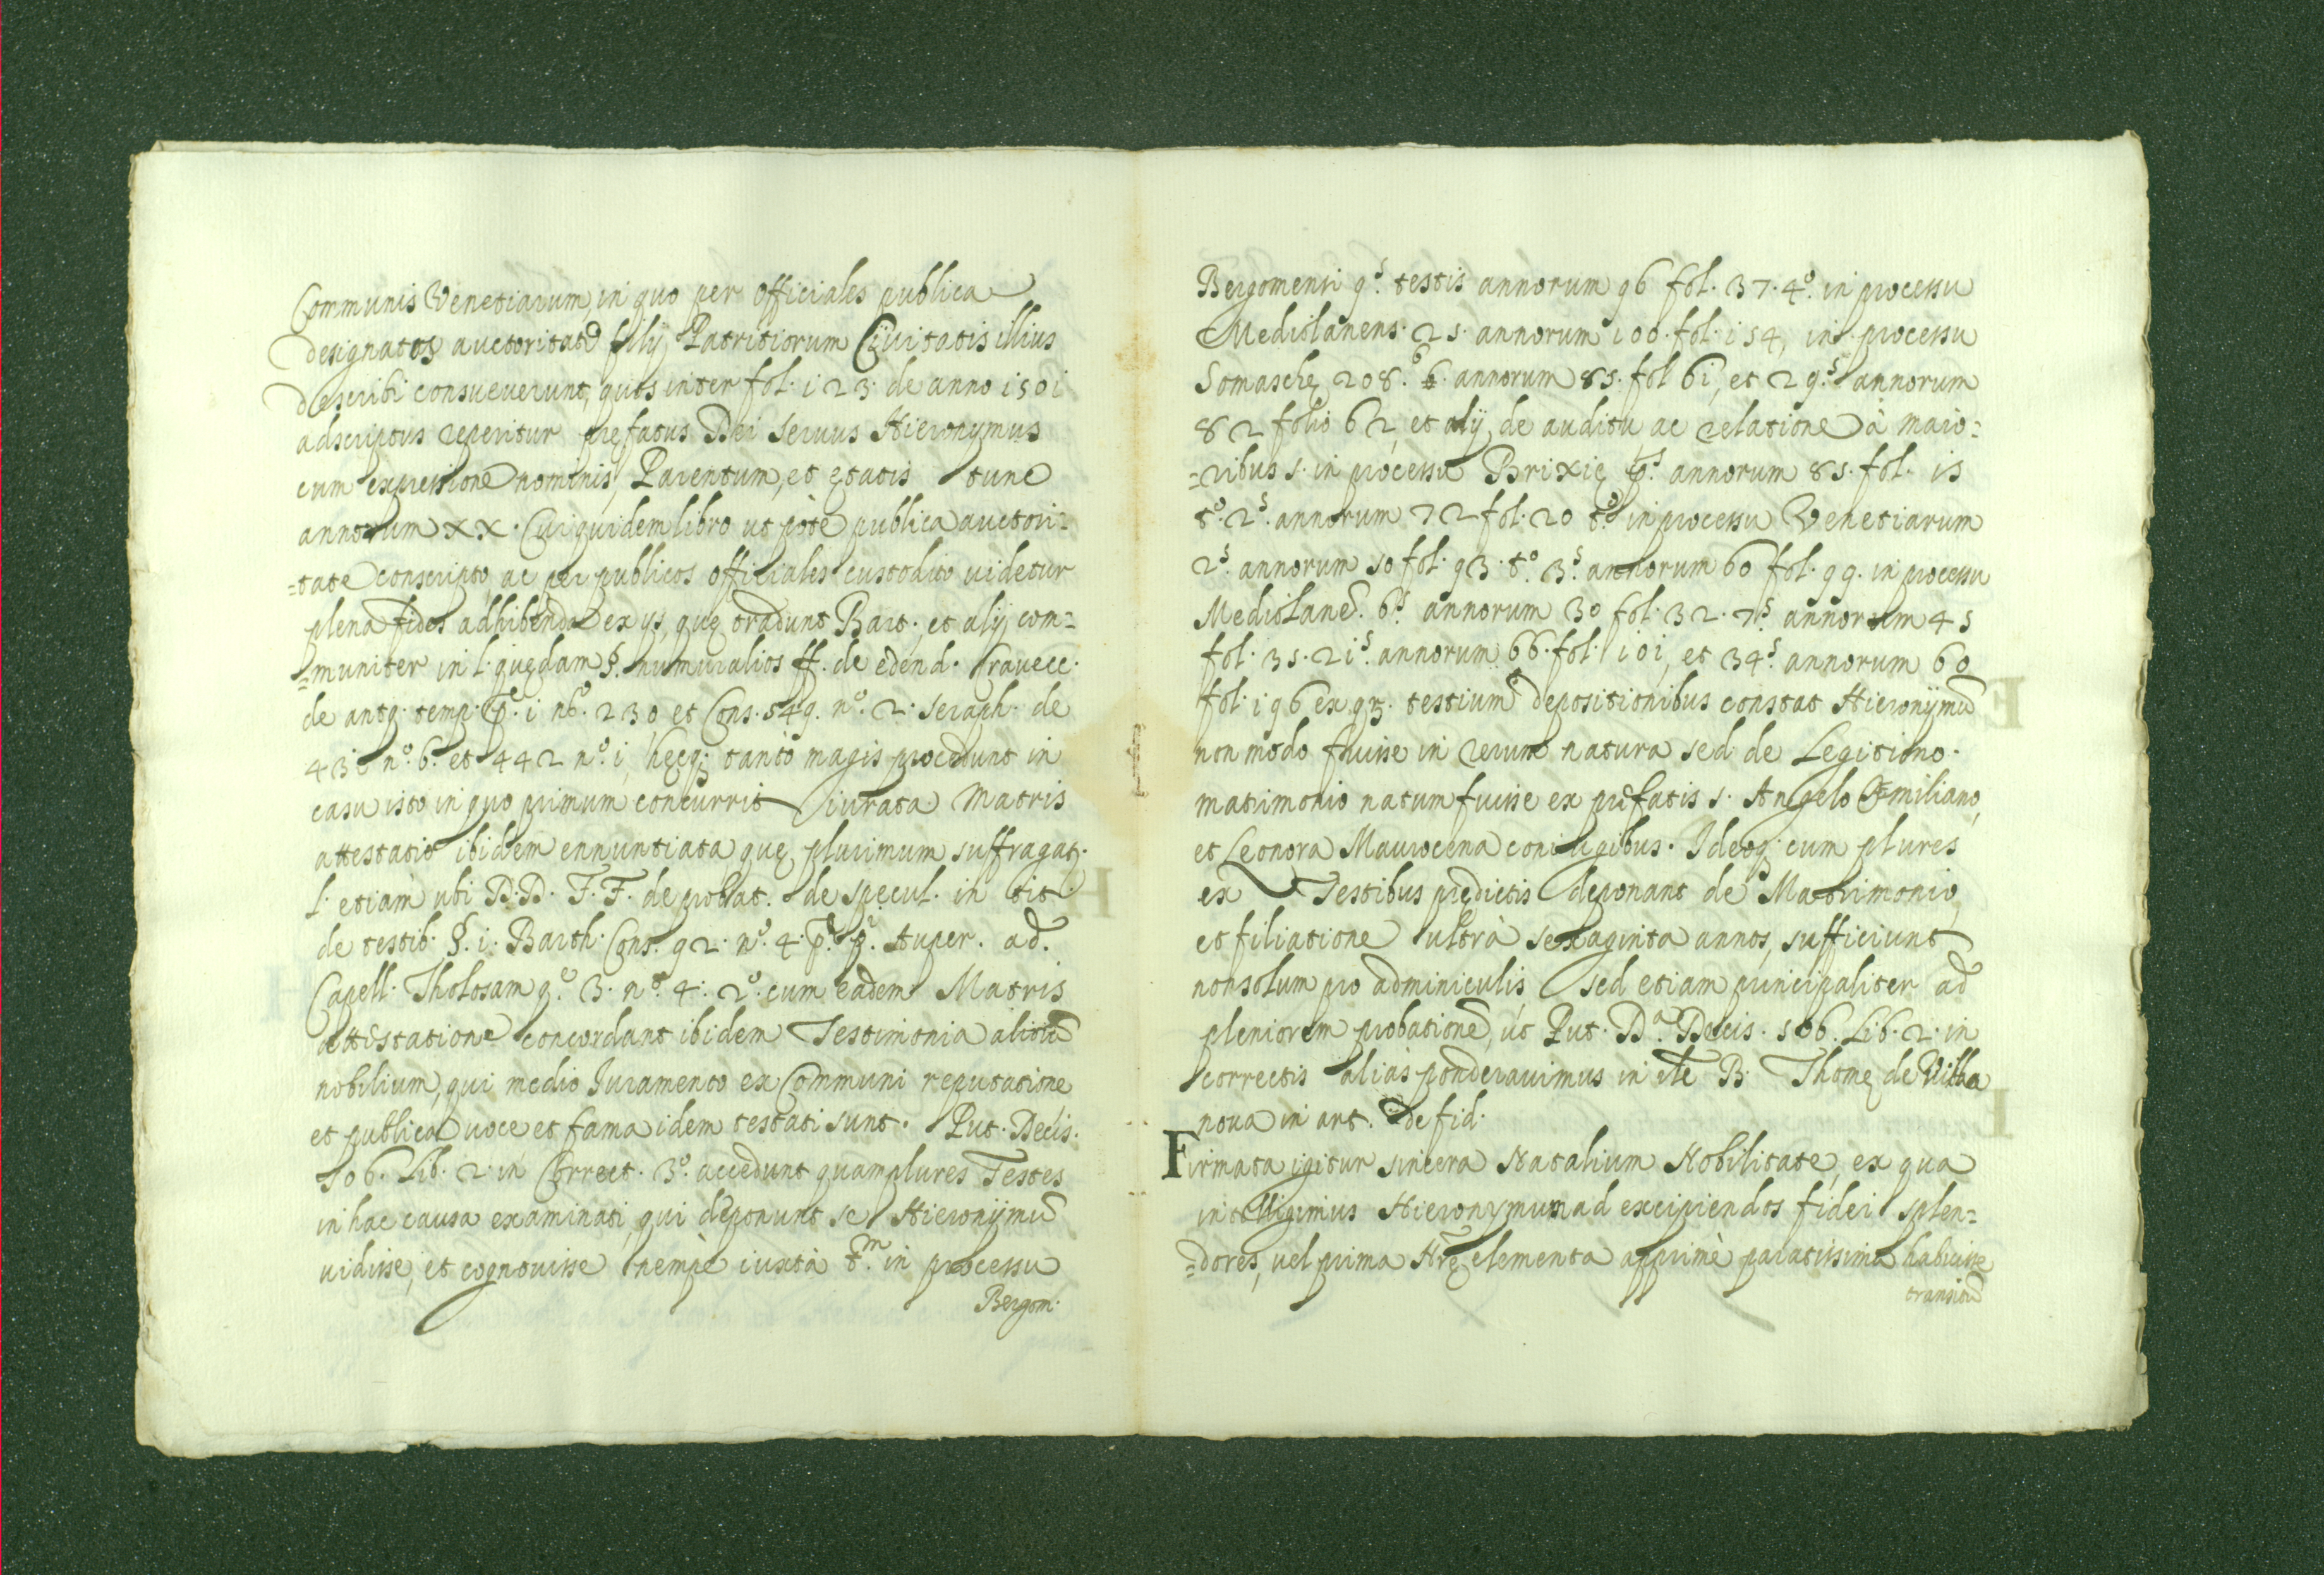 Communis Venetiarum, in quo per officiales publica
designatos auctoritate filij Patritiorum Civitatis illius
describi consueverunt, quos inter fol. i23. de anno i50i
adscriptus reperitur prefatus Dei servus Hieronymus
cum expressione nominis, Parentum, et ętatis tunc
annorum XX. Cui quidem libro ut pote publica auctori=
=tate conscripto, ac per publicos officiales custodito videtur
plena fides adhibenda ex ijs, quę tradunt Bart. et alij com=
=muniter in l. quędam §. nummularios ff. de edend. Cravecc.
de antq. temp. p.e i n.o 230 et Cons. 549. n.o 2. seraph. de
43i n.o 6. et 442 n.o i, hęcq; tanto magis procedunt in
casu isto in quo primum concurrit iurata Matris
attestatio ibidem ennuntiata quę plurimum suffragat.
l. etiam ubi D.D. F.F. de probat. de specul. in tit.
de testib. §. i. Barth. Cons. 92. n.o 4. Auper. ad.
Capell. Tholosam q.e 3. n.o 4. 2.o cum eadem Matris
attestatione concordant ibidem Testimonia aliorũ
nobilium, qui medio Iuramento ex Communi reputatione
et publica voce et fama idem testati sunt. Put. Decis.
506. Lib. 2. in Correct. 3.o accedunt quamplures Testes
in hac causa examinati, qui deponunt se Hieronijmũ
vidisse, et cognovisse nempè iuxtà t.m in processu
Bergom.
Bergomensi 9.s testis annorum 96 fol. 37. 4.o in processu
Mediolanens. 25. annorum i00. fol. i54, in processu
Somaschę 208. 6. annorum 85. fol 6i, et 29.s annorum
82 folio 62, et alij de auditu ac relatione à maio=
=ribus s. in processu Brixię p.s annorum 85. fol. i5
t.o 2.s annorum 72 fol. 20 t.o in processu Venetiarum
2.s annorum 50 fol. 93. t.o 3.s annorum 60 fol. 99. in processu
Mediolanẽ. 6.s annorum 30 fol. 32. 7.s annorum 45
fol. 35. 2i.s annorum 66. fol. i0i, et 34.s annorum 60
fol. i96 ex q3. testium depositionibus constat Hieronijmũ
non modo fuisse in rerum natura sed de Legitimo.
matrimonio natum fuisse ex prefatis s. Angelo Æmiliano,
et Leonora Maurocena coniugibus. Ideoq; cum plures
ex Testibus prędictis deponant de Matrimonio,
et filiatione ultrà sexaginta annos, sufficiunt
non solum pro adminiculis sed etiam principaliter ad
pleniorem probationẽ, ut Put. D.a Decis. 506. Lib. 2. in
correctis alias ponderavimus in rlẽ B. Thomę de Villa
nova in art. de fid.
Firmata igitur sincera Natalium Nobilitate, ex qua
intelligimus Hieronymum ad excipiendos fidei splen=
=dores, vel prima Nrę elementa apprimè paratissima habuisse
transitũ